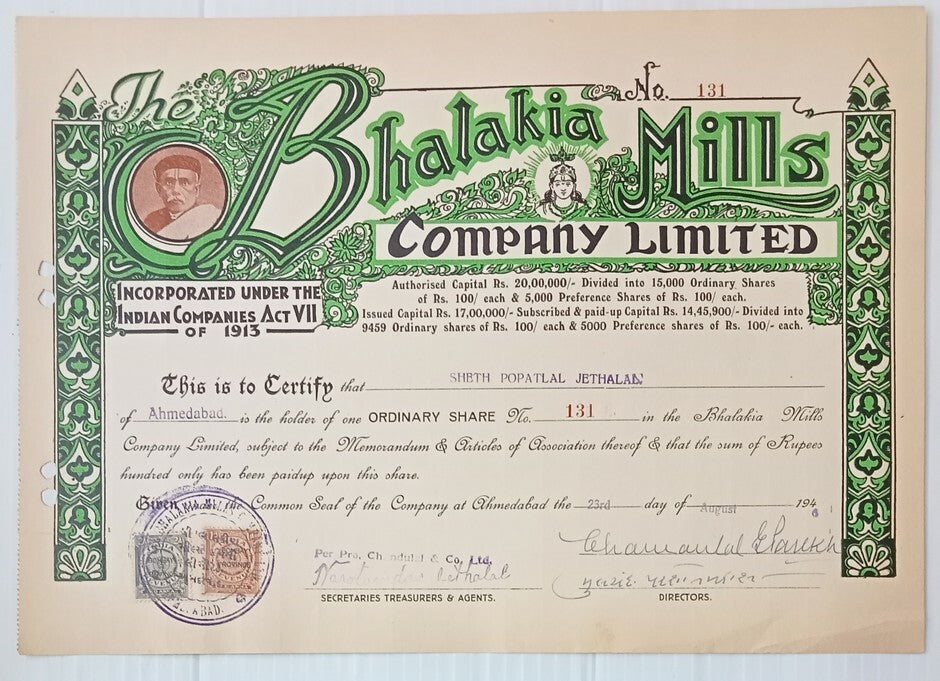 No. 131
The Bhalakia Mills
COMPANY LIMITED
INCORPORATED UNDER THE
INDIAN COMPANIES ACT VII
OF 1913
Authorised Capital Rs. 20,00,000/- Divided into 15,000 Ordinary Shares
of Rs. 100/ each & 5,000 Preference Shares of Rs. 100/ each.
Issued Capital Rs. 17,00,000/- Subscribed & paid-up Capital Rs. 14,45,900/- Divided into
9459 Ordinary shares of Rs. 100/ each & 5000 Preference shares of Rs. 100/- each.
This is to Certify that SHETH POPATLAL JETHALAL
of Ahmedabad. is the holder of one ORDINARY SHARE No. 131 in the Bhalakia Mills
Company Limited, subject to the Memorandum & Articles of Association thereof & that the sum of Rupees
hundred only has been paidup upon this share.
Given under the Common Seal of the Company at Ahmedabad the 23rd day of August 194
Per Pro, Chandulal & Co, Ltd.
Jethalal
SECRETARIES TREASURERS & AGENTS.
Chamanlal Parekh
DIRECTORS.